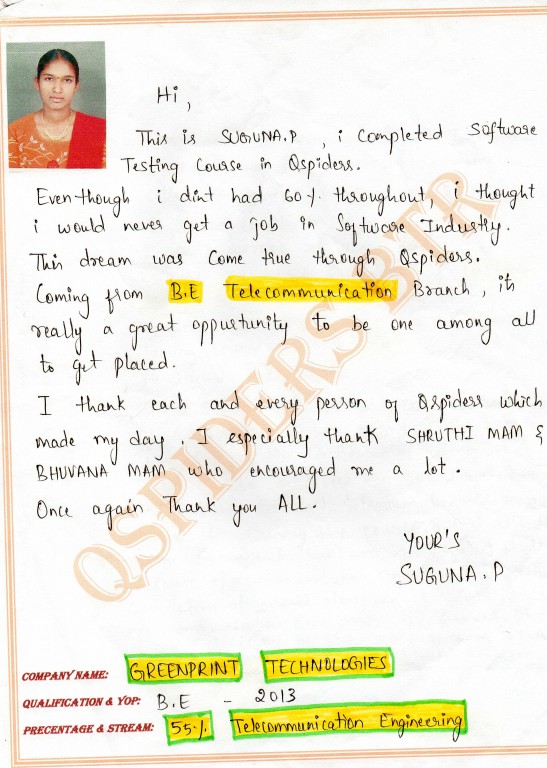 Hi,
This is SUGUNA.P , i Completed Software
Testing Course in Qspiders.
Eventhough i dint had 60% throughout, i thought
i would never get a job in Software Industry.
This dream was Come true through Qspiders.
Coming from B.E Telecommunication Branch, its
really a great oppurtunity to be one among all
to get placed.
I thank each and every person of Qspiders which
made my day. I especially thank SHRUTHI MAM &
BHUVANA MAM who encouraged me a lot.
Once again Thank you ALL.
YOUR'S
SUGUNA.P
QSPIDERS BTR
COMPANY NAME: GREENPRINT TECHNOLOGIES
QUALIFICATION & YOP: B.E - 2013
PRECENTAGE & STREAM: 55% Telecommunication Engineering